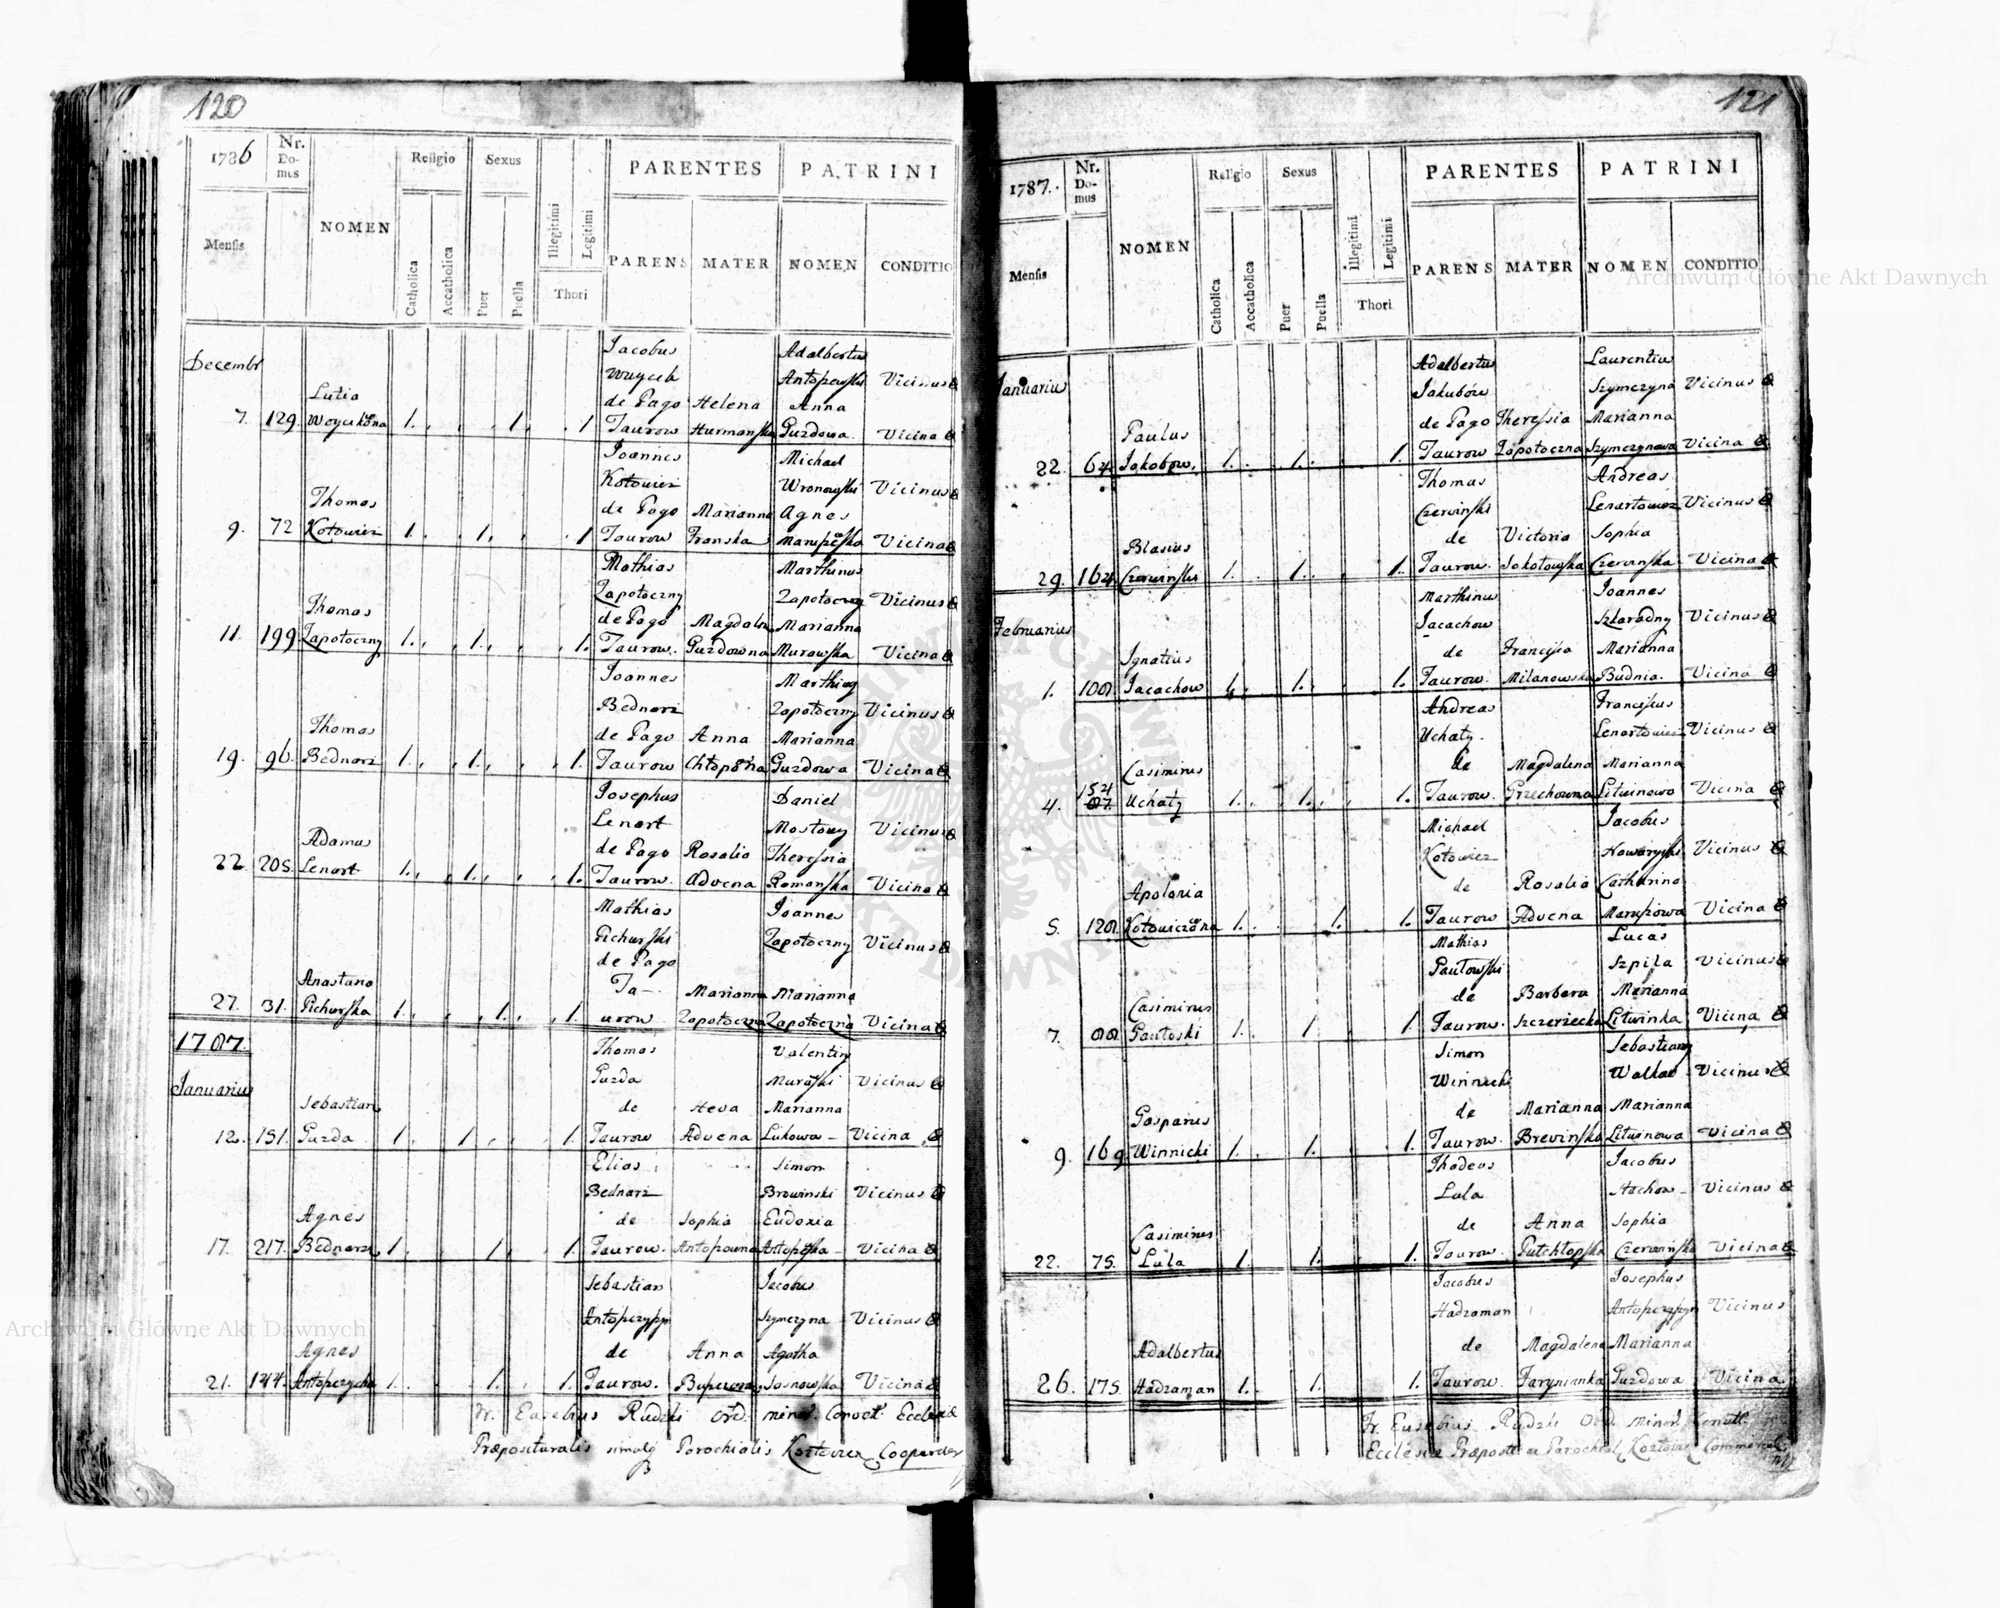 120
1786
Nr. Domus
NOMEN
Religio
Sexus
PARENTES
PATRINI
Mensis
Catholica
Accatholica
Puer
Puella
Illegitimi
Legitimi
Thori
PARENS
MATER
NOMEN
CONDITIO
Jacobus Adalbertus
Decembr
Woycik Antoszewski Vicinus
Lutia de Pago Helena Anna
7. 129. 1. 1. 1 Taurow Guzdowa. Vicina
Joannes Michael
Kotowicz Wronowski Vicinus
Thomas de Pago Marianna Agnes
9. 72 Kotowicz 1. 1. 1 Taurow Franska Vicina
Mathias Marthinus
Zapotoczny Zapotoczny Vicinus
Thomas de Pago Magdalena Marianna
11. 199 Zapotoczny 1. 1. 1. Taurow. Guzdowna Murawska Vicina
Joannes
Bednarz Zapotoczny Vicinus
Thomas de Pago Anna Marianna
19. 96. Bednarz 1. 1. 1. Taurow Guzdowa Vicina
Josephus Daniel
Lenart Mostowy Vicinus
Adamus de Pago Rosalia Theressia
22. 205. Lenart 1. 1. 1. Taurow. Advena Romanska Vicina
Mathias Joannes
Pichurski Zapotoczny Vicinus
de Pago
Anastana Ta- Marianna Marianna
27. 31. Pichurska 1. 1. 1. urow. Zapotoczna Zapotoczna Vicina
1787. Thomas Valentiny
Januarius Guzda Muraski Vicinus
Sebastian de Heva Marianna
12. 151. Guzda 1. 1. 1. Taurow Advena Lukowa - Vicina
Elias Simon
Bednarz Browinski Vicinus
Agnes de Sophia Eudoxia
17. 217. Bednarz 1. 1. 1. Taurow. Vicina
Sebastian Jacobus
Szymczyna Vicinus
Agnes de Anna Agatha
21. 144. 1. 1. 1. Taurow. Sosnowska Vicina
Fr. Eusebius Rudzki Ord. minor. Convet. Ecclesiae
Praeposituralis simulq Parochialis Cooperator
121
1787.
Nr. Domus
NOMEN
Religio
Sexus
PARENTES
PATRINI
Mensis
Catholica
Accatholica
Puer
Puella
Illegitimi
Legitimi
Thori
PARENS
MATER
NOMEN
CONDITIO
Adalbertus Laurentius
Januarius Jakubów Szymczyna Vicinus
Paulus de Pago Theressia Marianna
22. 64. Jakobow. 1. 1. 1. Taurow Zapotoczna Szymczynowa Vicina
Thomas Andreas
Czerwinski Lenartowicz Vicinus
Blasius de Victoria Sophia
29. 164. Czerwinski 1. 1. 1. Taurow. Sokotowska Czerwinska Vicina
Marthinus Joannes
Februarius Jacachow Szkaradny Vicinus
Ignatius de Francisia Marianna
1. Jacachow 1. 1. 1. Taurow. Milanowska Budnia. Vicina
Andreas Franciscus
Uchaty. Lenartowicz Vicinus
Casimirus de Magdalena Marianna
4. 154 87. Uchaty 1. 1. 1. Taurow. Grzechowna Litwinowa Vicina
Michael Jacobus
Kotowicz Vicinus
Apolonia de Rosalia Catharina
5. Kotowiczona 1. 1. 1. Taurow Advena Vicina
Mathias Lucas
Pautowski Szpila Vicinus
Casimirus de Barbara Marianna
7. 88. Pautoski 1. 1. 1. Taurow. Szczeriecka Litwinka Vicina
Simon Sebastiany
Winnicki Vicinus
Gasparus de Marianna Marianna
9. 169 Winnicki 1. 1. 1. Taurow. Brevinska Litwinowa Vicina
Thadeus Jacobus
Lula Vicinus
Casimirus de Anna Sophia
22. 75. Lula 1. 1. 1. Taurow. Czerwinska Vicina
Jacobus Josephus
Hadzaman Vicinus
Adalbertus de Magdalena Marianna
26. 175. Hadzaman 1. 1. 1. Taurow. Guzdowa Vicina.
Fr. Eusebius Rudzki Ord. Minor.
Ecclesiae Parochial.
Archiwum Główne Akt Dawnych
Archiwum Główne Akt Dawnych